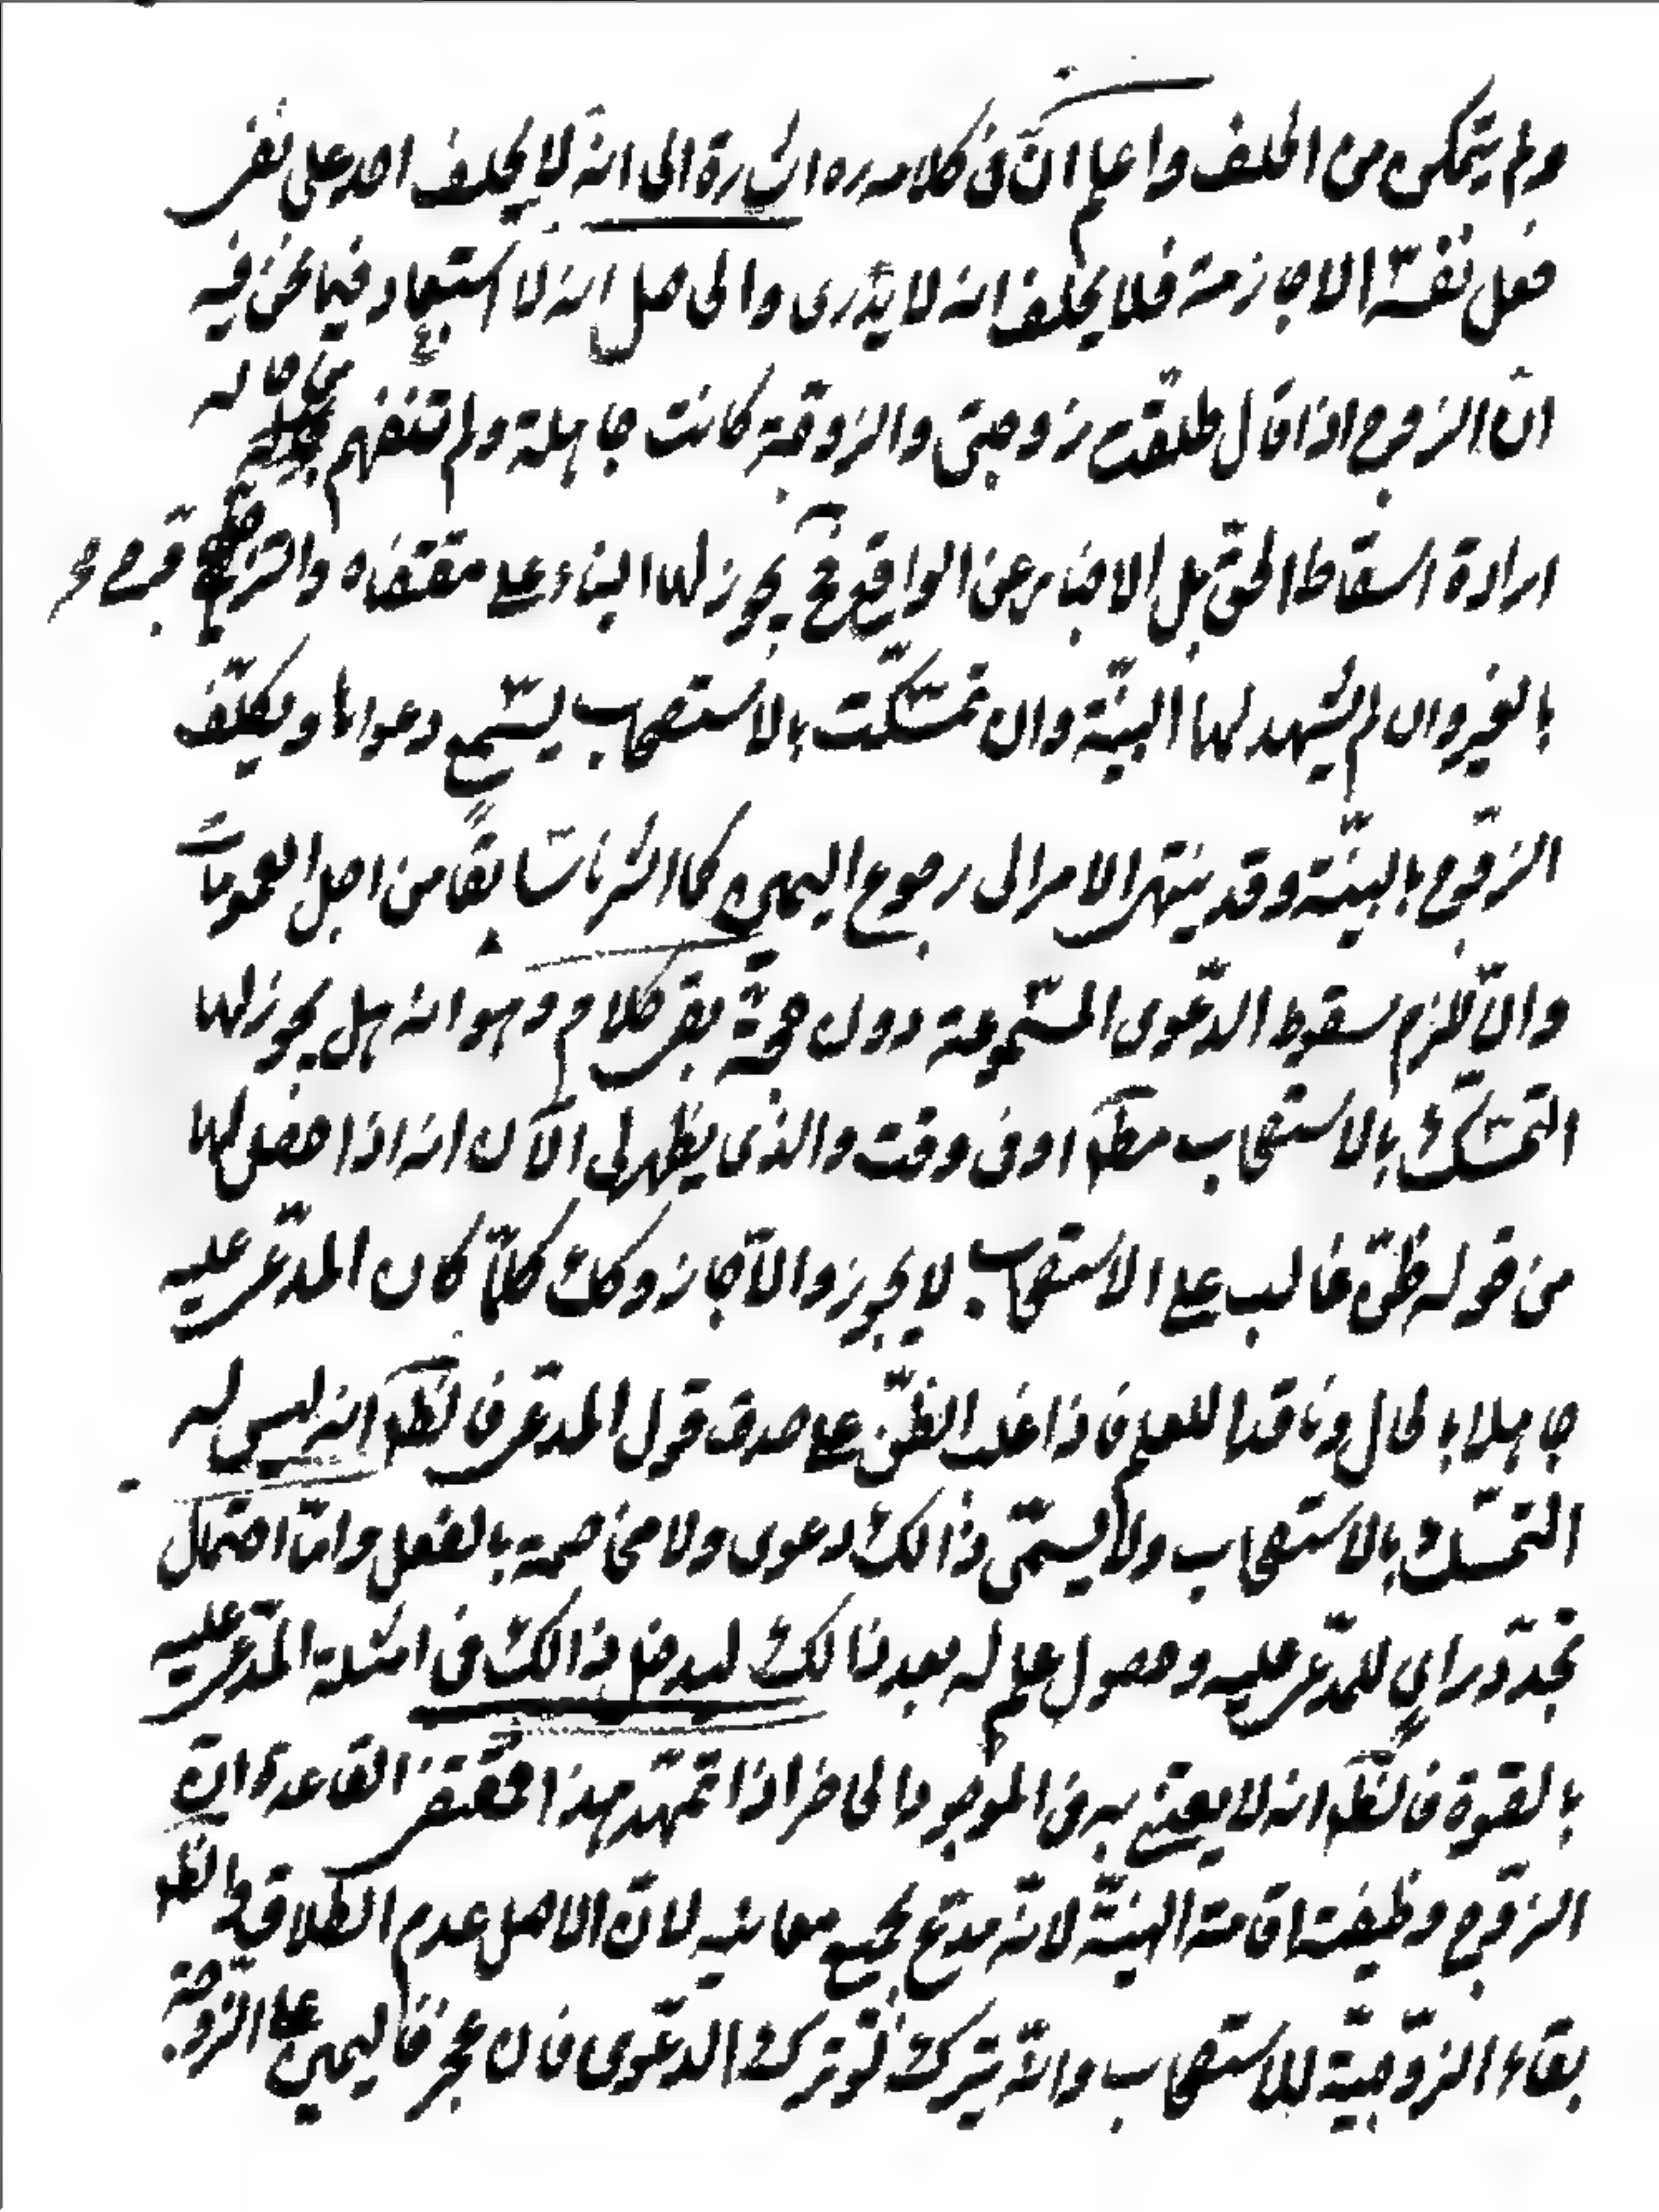 ولم يتمكن من الحلف واعلم ان في كلامه ره اشارة الى انه لا يحلف احد على نفي
فعل نفسه الا جازمة فلا يحلف انه لا يدرى والحاصل انه لا استبعاد فيما نحن فيه
ان الزوج اذا قال طلقت زوجتى والزوجة كانت جاهلة ولم تتفهم من حاله
ارادة اسقاط الحق بل الاخبار عن الواقع فح يجوز لها البناء على مقتضاه والتزويج
بالغير وان لم يشهد لها البينة وان تمسكت بالاستصحاب يسمع دعواها ويكلف
الزوج بالبينة وقد ينتهى الامر الى رجوع اليمين كما اشرنا سابقا من اجل العمومات
وان لا يلزم سقوط الدعوى المسموعة دون حجة بقى كلام وهو انه هل يجوز لها
التمسك بالاستصحاب مطلقا او فى وقت والذى يظهر لى الآن انه اذا حصل لها
من قوله ظن غالب على الاستصحاب لا يجوز والا جاز وكك كلما كان المدعى عليه
جاهلا بالحال وفاقدا للعلم فاذا غلب الظن على صدق قول المدعى فالظ انه ليس له
التمسك بالاستصحاب ولا يسمى ذالك دعوى ولا مخاصمة بالفعل واما احتمال
تجدد راي للمدعى عليه وحصول علم له بعد ذالك ليدخل ذالك فى امثلة المدعى عليه
بالقوة فالظ انه لا يعتنى به فى الموجود الحاضر اذا تمهد هذا فمقتضى القاعدة ان
الزوج وظيفته اقامة البينة لانه مدع بجميع معانيه لان الاصل عدم الطلاق والظ
بقاء الزوجية للاستصحاب وانه يترك لو ترك الدعوى فان عجز فاليمين على الزوجة